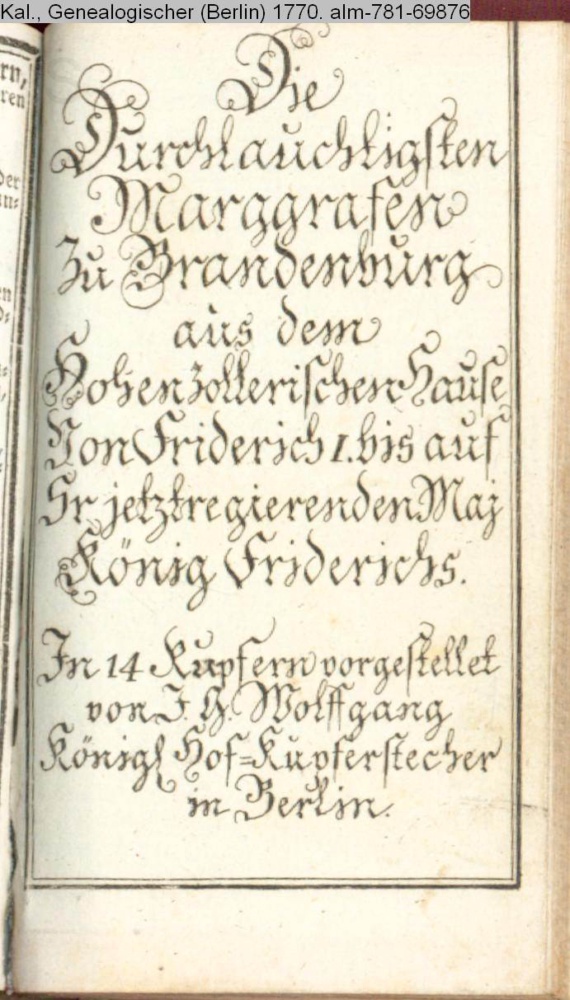 Kal., Genealogischer (Berlin) 1770. alm-781-69876
Die
Durchlauchtigsten
Marggrafen
zu Brandenburg
aus dem
Hohenzollerischen Hause
Von Friderich I. bis auf
Sr jetztregierenden Maj
König Friderichs.
In 14 Kupfern vorgestellet
von J. G. Wolffgang
Königl Hof=Kupferstecher
in Berlin.